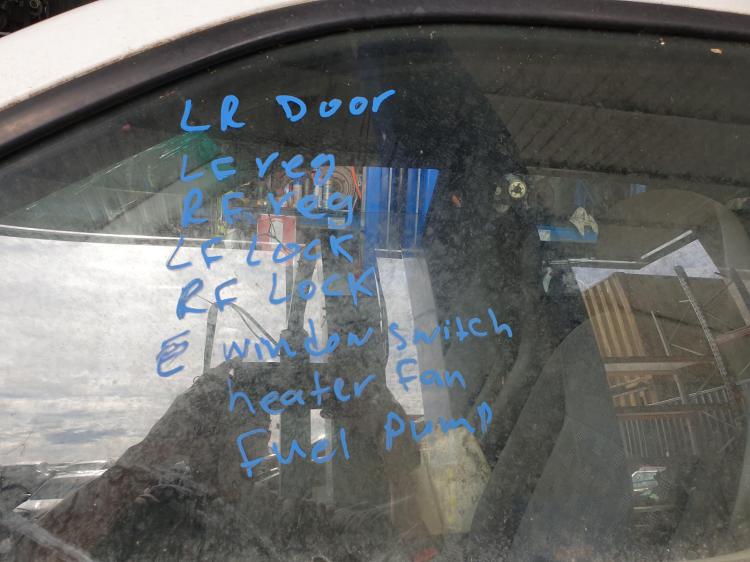 LR Door
LF reg
RF reg
LF LOCK
RF LOCK
E window switch
heater Fan
Fuel Pump